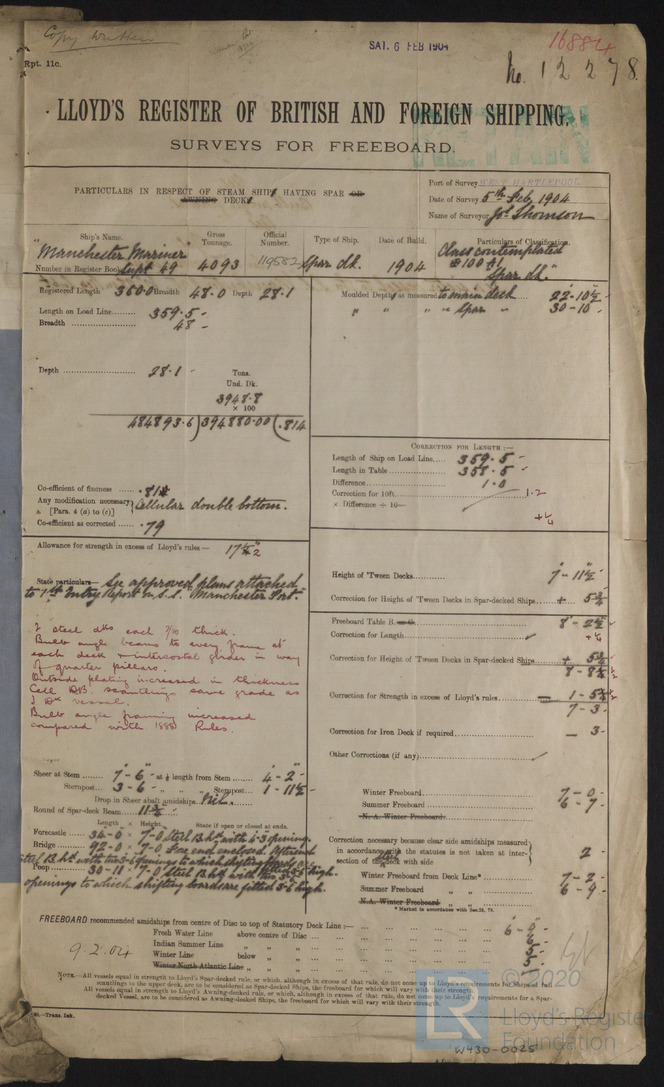 Copy written
SAT. 6 FEB 1904
16884
Rpt. 11c.
No. 12278
LLOYD'S REGISTER OF BRITISH AND FOREIGN SHIPPING.
SURVEYS FOR FREEBOARD.
PARTICULARS IN RESPECT OF STEAM SHIPS HAVING SPAR OR
AWNING DECKS
Port of Survey WEST HARTLEPOOL
Date of Survey 5th Feb. 1904
Name of Surveyor Jos. Thomson
Ship's Name. Gross Tonnage. Official Number. Type of Ship. Date of Build. Particulars of Classification.
"Manchester Mariner" 4093 119552 Spar dk. 1904 Class contemplated
Number in Register Book Supt 49
100 A1
"Spar dk"
Registered Length 360.0 Breadth 48.0 Depth 28.1
Length on Load Line 359.5
Breadth 48
Depth 28.1
Tons.
Und. Dk.
3948.8
× 100
484893.6)394880.00(.814
Co-efficient of fineness .814
Any modification necessary [Para. 4 (a) to (e)] Cellular double bottom.
Co-efficient as corrected .79
Moulded Depth, as measured to main deck 22-10½
" " " " Spar " 30-10
CORRECTION FOR LENGTH :—
Length of Ship on Load Line 359.5
Length in Table 358.5
Difference 1.0
Correction for 10ft. 1.2
× Difference ÷ 10—
+¼
Allowance for strength in excess of Lloyd's rules— 17
State particulars— See approved plans attached
to 1st Entry Report on S.S. Manchester Port.
2 steel dks each 7/20 thick.
Bulb angle beams to every frame at
each deck + intercostal girder in way
of quarter pillars.
Outside plating increased in thickness
Cell DB. scantlings same grade as
3 Dk vessel.
Bulb angle framing increased
compared with 1888 Rules.
Height of 'Tween Decks 7-11½
Correction for Height of 'Tween Decks in Spar-decked Ships + 5¾
Freeboard Table B. 8-2½
Correction for Length +¼
Correction for Height of 'Tween Decks in Spar-decked Ships + 5¾
8-8½
Correction for Strength in excess of Lloyd's rules — 1-5½
7-3
Correction for Iron Deck if required — 3
Other Corrections (if any)
Winter Freeboard 7-0
Summer Freeboard 6-7
N. A. Winter Freeboard
Sheer at Stem 7-6 at ⅛ length from Stem 4-2
Sternpost 3-6 " " Sternpost 1-11½
Drop in Sheer abaft amidships Nil.
Round of Spar-deck Beam 11¾
Length × Height. State if open or closed at ends.
Forecastle 34-0 × 7-0 Steel B.hd. with 6-3 opening
Bridge 92-0 × 7-0 Fore end enclosed. After end
steel B.hd. with two 3-6 openings to which shifting boards are
Poop 30-11 × 7-0 Steel B.hd. with two 3-5 high.
openings to which shifting boards are fitted 5-6 high.
Correction necessary because clear side amidships measured
in accordance with the statutes is not taken at inter-
section of deck with side 2
Winter Freeboard from Deck Line* 7-2
Summer Freeboard " " 6-9
N.A. Winter Freeboard " "
* Marked in accordance with
FREEBOARD recommended amidships from centre of Disc to top of Statutory Deck Line :—
Fresh Water Line above centre of Disc
Indian Summer Line " "
Winter Line below "
Winter North Atlantic Line " "
9.2.04
NOTE.—All vessels equal in strength to Lloyd's Spar-decked rule, or which, although in excess of that rule, do not come up to Lloyd's requirements for Ships of full
scantlings to the upper deck, are to be considered as Spar-decked Ships, the freeboard for which will vary with their strength.
All vessels equal in strength to Lloyd's Awning-decked rule, or which, although in excess of that rule, do not come up to Lloyd's requirements for a Spar-
decked Vessel, are to be considered as Awning-decked Ships, the freeboard for which will vary with their strength.
Trans. Ink.
LR
© 2020
Lloyd's Register
Foundation
W430-0025